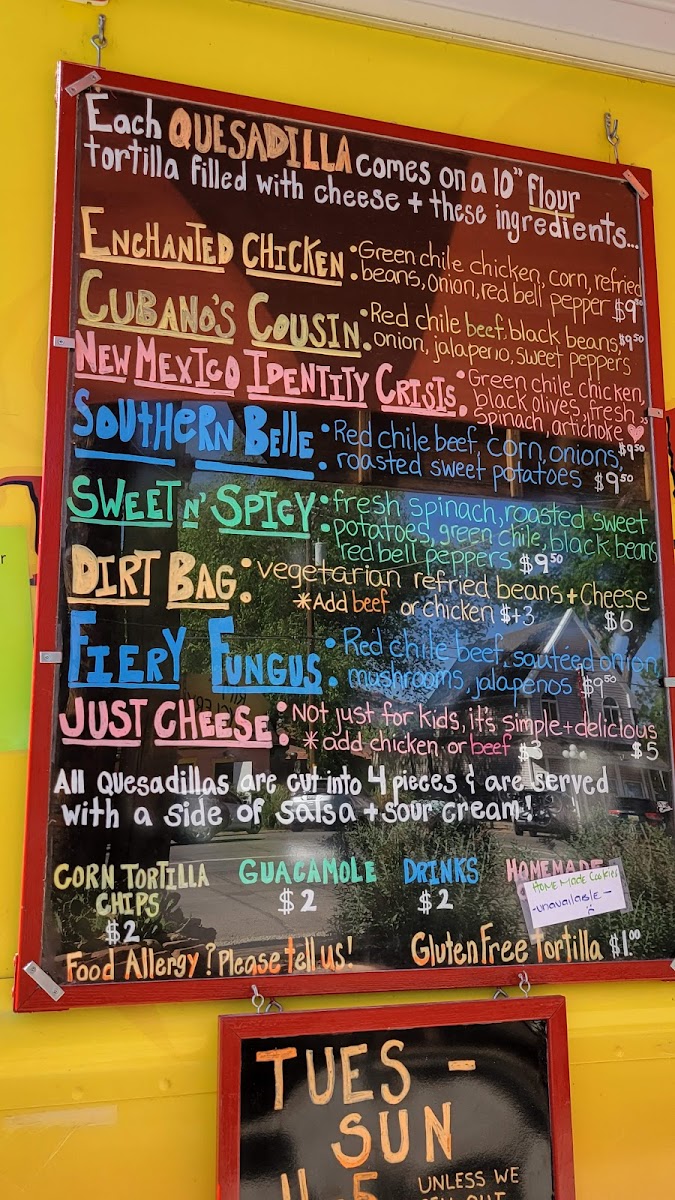 Each QUESADILLA comes on a 10" flour
tortilla filled with cheese + these ingredients...
ENCHANTED CHICKEN: Green chile chicken, corn, refried
beans, onion, red bell pepper $9
CUBANO'S COUSIN: Red chile beef, black beans, $9.50
onion, jalapeno, sweet peppers
NEW MEXICO IDENTITY CRISIS: Green chile chicken,
black olives, fresh
spinach, artichoke ♥
$9.50
SOUTHERN BELLE: Red chile beef, corn, onions,
roasted sweet potatoes $9.50
SWEET N' SPICY: fresh spinach, roasted sweet
potatoes, green chile, black beans
red bell peppers $9.50
DIRT BAG: vegetarian refried beans + cheese
*Add beef or chicken $+3 $6
FIERY FUNGUS: Red chile beef, sautéed onion
mushrooms, jalapenos $9.50
JUST CHEESE: Not just for kids, it's simple + delicious
*add chicken or beef $3 $5
All Quesadillas are cut into 4 pieces & are served
with a side of salsa + sour cream!
CORN TORTILLA CHIPS $2
GUACAMOLE $2
DRINKS $2
HOMEMADE
HOME Made Cookies
-unavailable-
Food Allergy? Please tell us!
Gluten Free Tortilla $1.00
TUES -
SUN
UNLESS WE